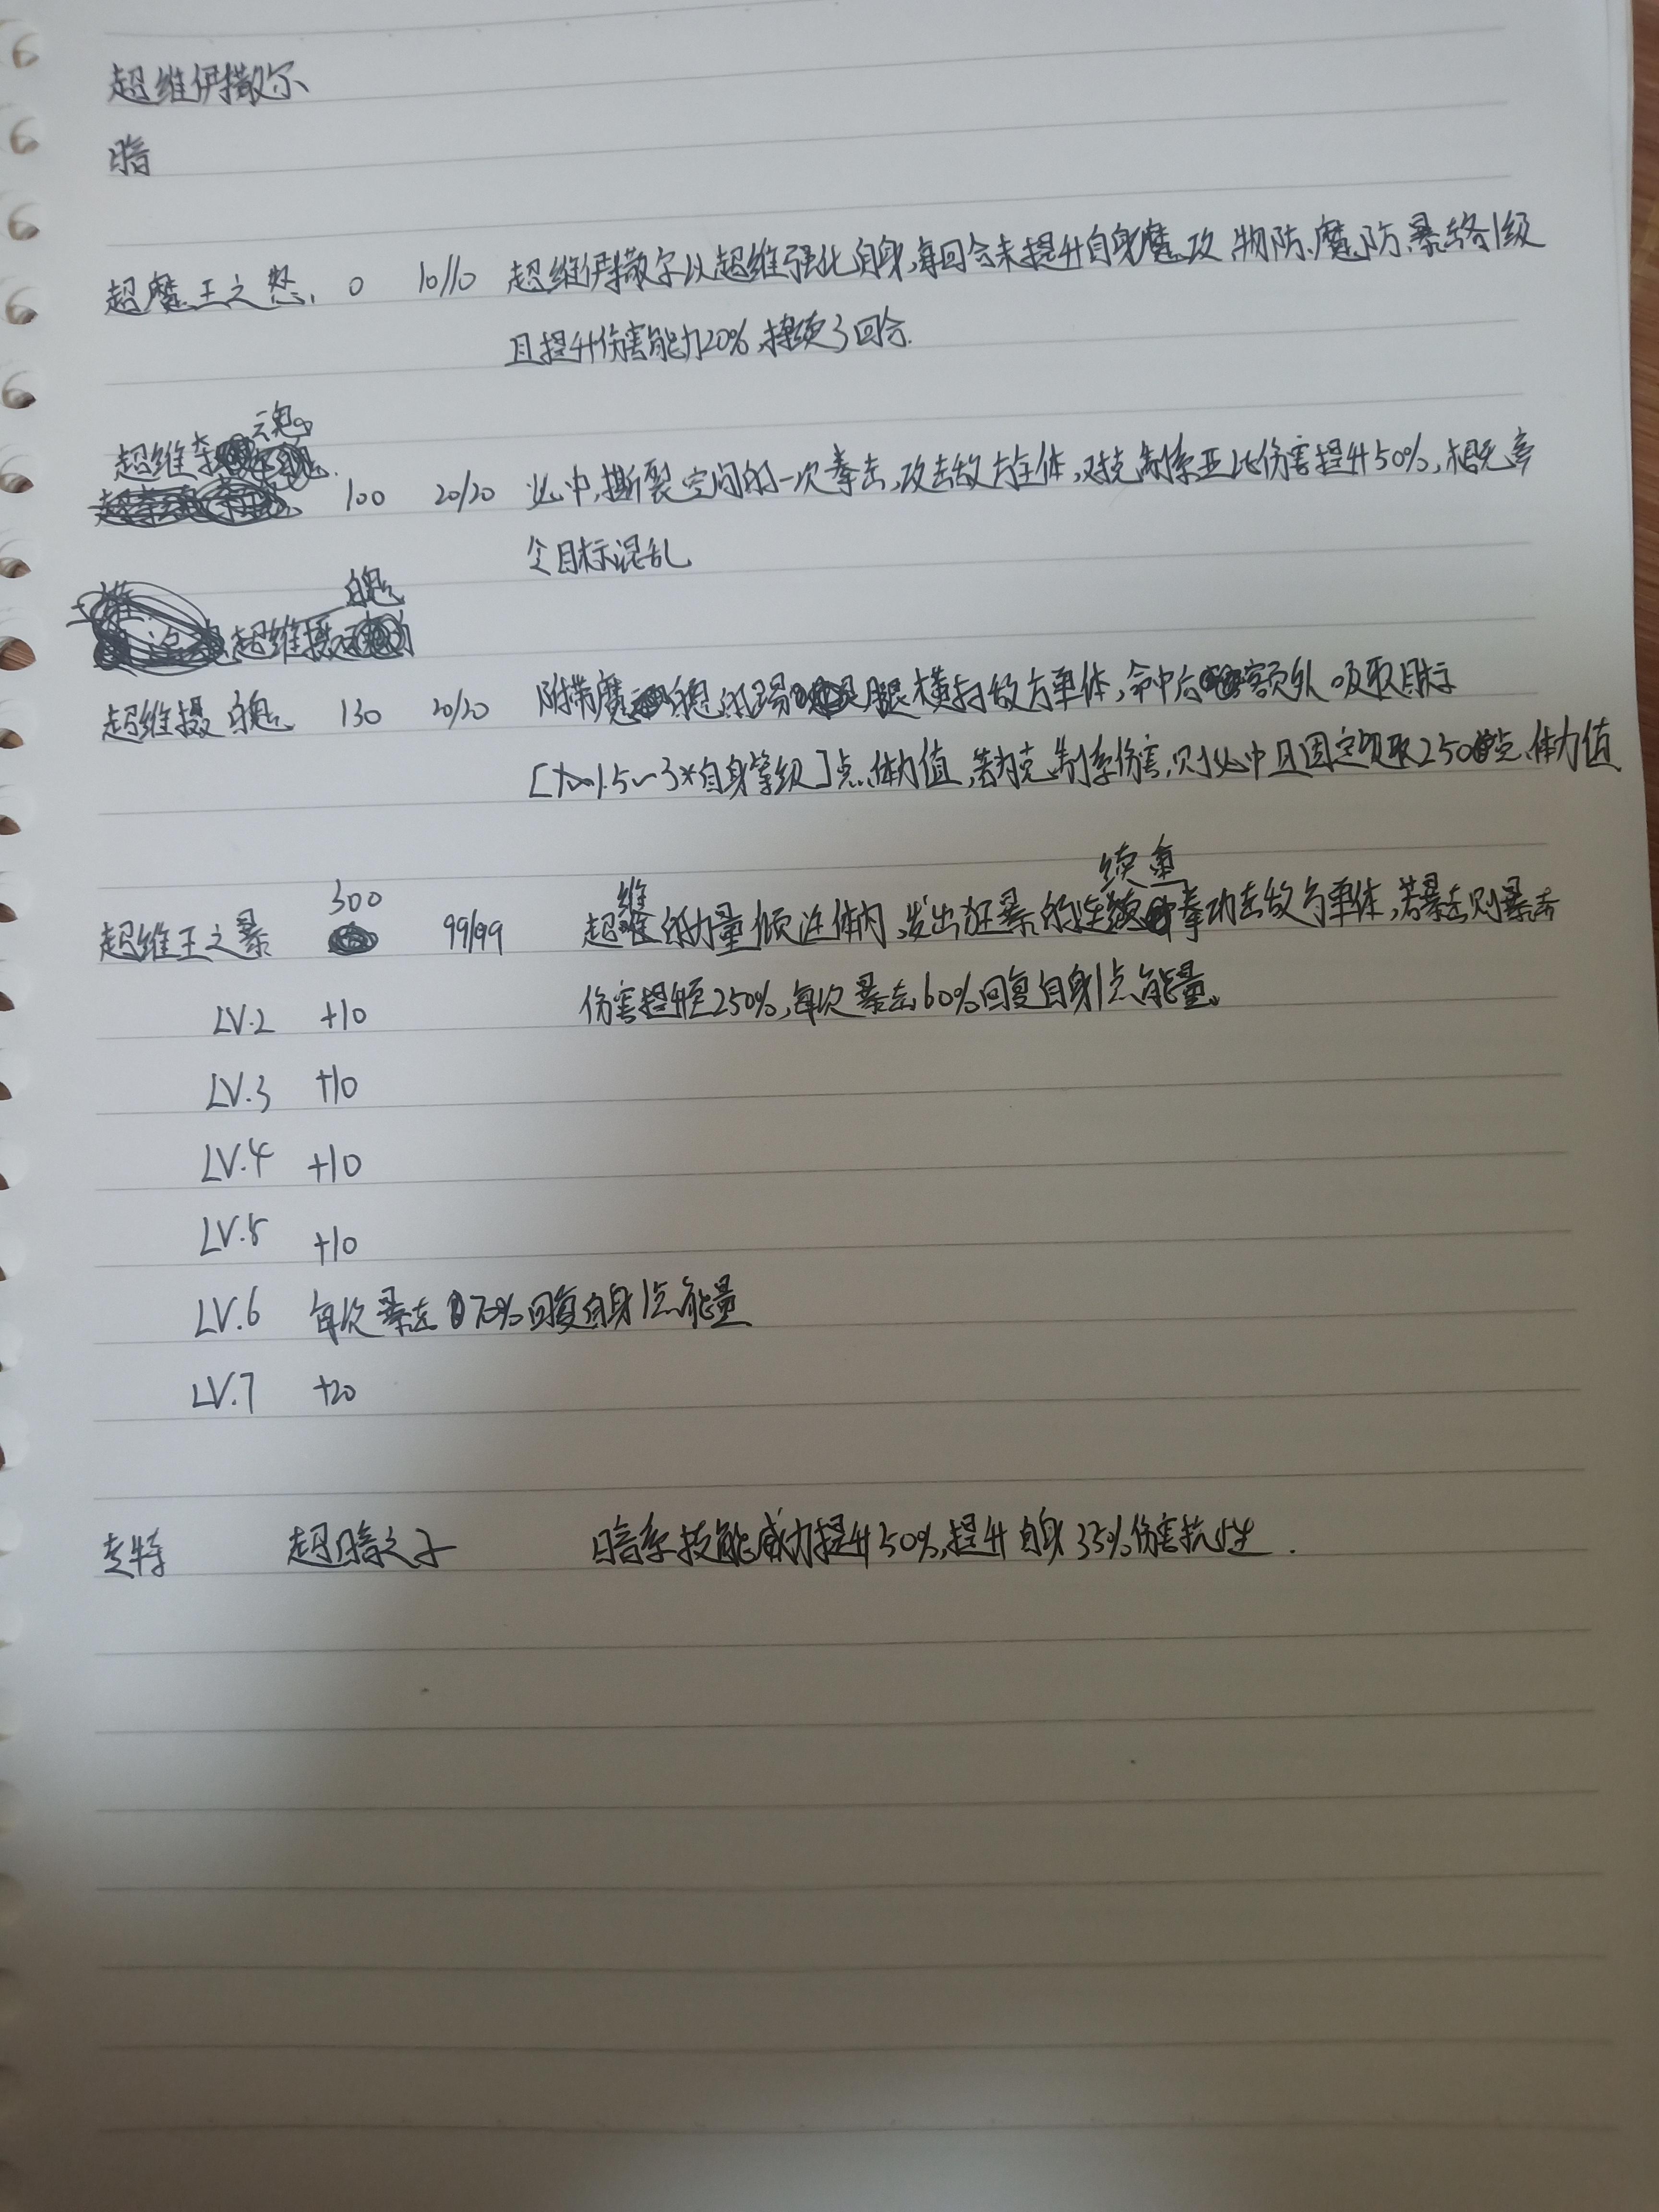 超维伊撒尔
暗
超魔王之怒 0 10/10 超维伊撒尔以超维强化自身,每回合末提升自身魔攻、物防、魔防、暴击各1级
且提升伤害能力20%,持续3回合.
魂
超维夺
100 20/20 必中,撕裂空间的一次拳击,攻击敌方全体,对克制系亚比伤害提升50%,概率
令目标混乱
魄
超维摄
超维摄魄 130 20/20 附带魔魄的腿横扫敌方单体,命中后额外吸取目标
[1.5~3*自身等级]点体力值,若为克制系伤害,则必中且固定吸取250点体力值
300 维 续重
超维王之暴 99/99 超的力量倾注体内,发出狂暴的连拳攻击敌方单体,若暴击则暴击
LV.2 +10 伤害提升至250%,每次暴击60%回复自身1点能量。
LV.3 +10
LV.4 +10
LV.5 +10
LV.6 每次暴击70%回复自身1点能量
LV.7 +20
专特 超暗之子 暗系技能威力提升50%,提升自身35%伤害抗性.